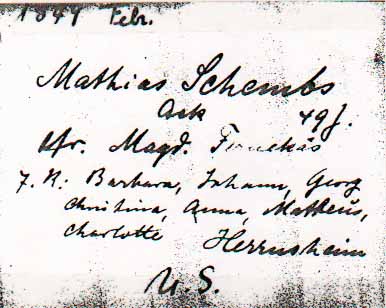 1849 Febr.
Mathias Schembs
Ack 49 J.
Magd.
7. K: Barbara, Johann, Georg
Christina, Anna, Mattheus,
Charlotte Herrnsheim
U. S.